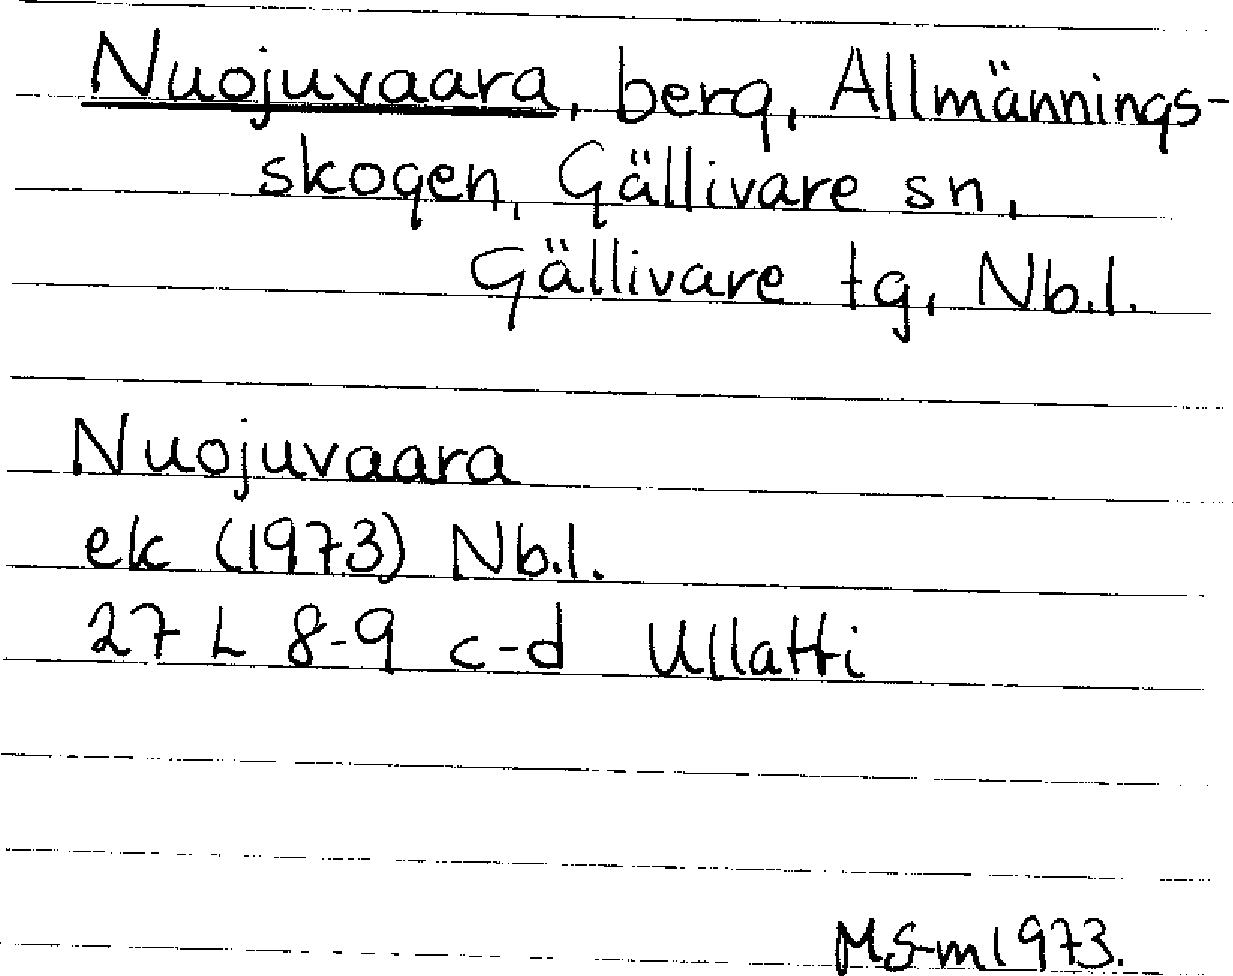 Nuojuvaara, berg, Allmännings-
skogen, Gällivare sn,
Gällivare tg, Nb.l.
Nuojuvaara
ek (1973) Nb.l.
27 L 8-9 c-d Ullatti
MS-m 1973.